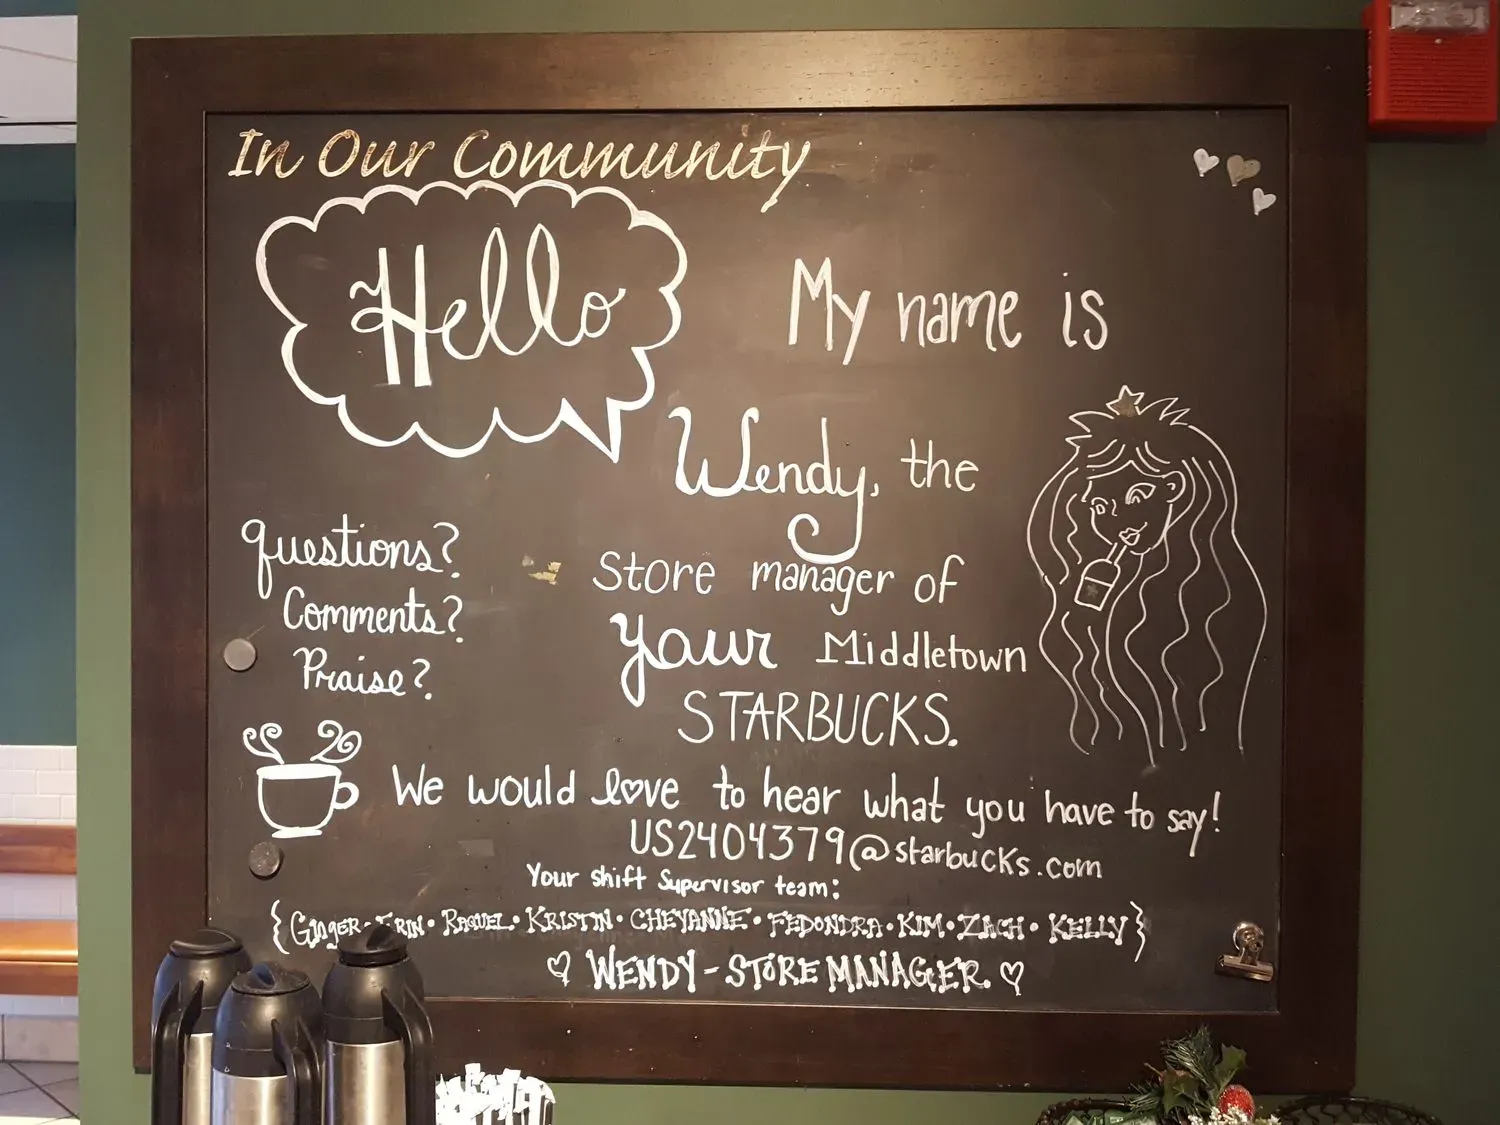 In Our Community
Hello
My name is
Wendy, the
Store manager of
your Middletown
STARBUCKS.
questions?
Comments?
Praise?
We would love to hear what you have to say!
US2404379@starbucks.com
Your shift Supervisor team:
{GINGER • ERIN • RAQUEL • KRISTIN • CHEYANNE • FEDONDRA • KIM • ZACH • KELLY}
♡ WENDY - STORE MANAGER ♡